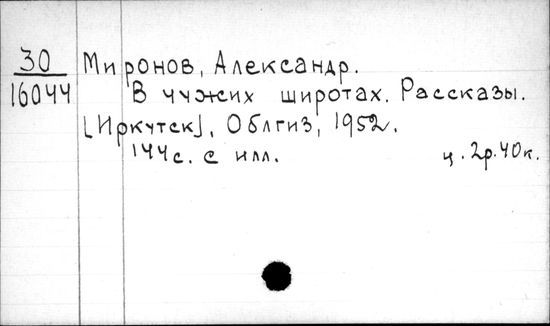 30 Миронов, Александр.
16044 В чужих широтах. Рассказы.
[Иркутск], Облгиз, 1952.
144с. с илл. ц. 2р.40к.